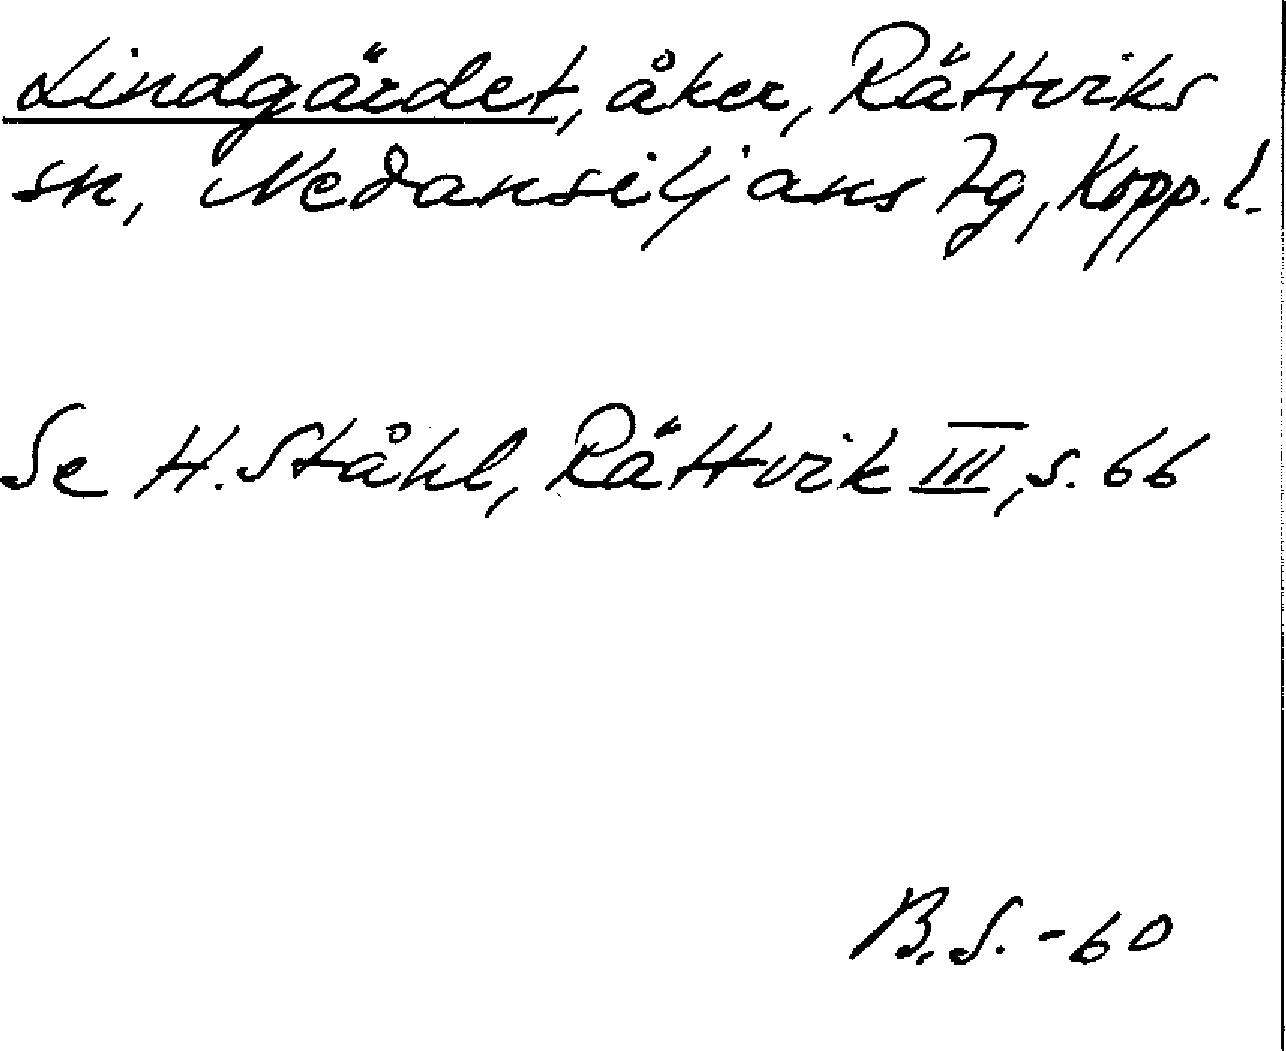 Lindgärdet, åker, Rättviks
sn, Nedansiljans tg, Kopp. l.
Se H. Ståhl, Rättvik III, s. 66
B.S. -60